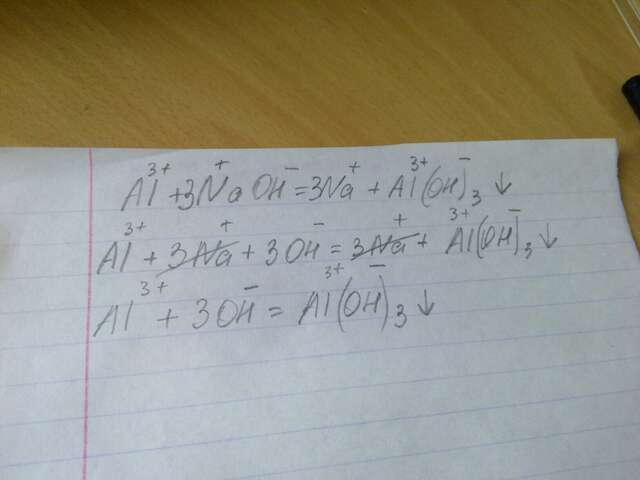 Al³⁺+3Na⁺OH⁻=3Na⁺+Al³⁺(OH)⁻₃↓
Al³⁺+3Na⁺+3OH⁻=3Na⁺+Al³⁺(OH)⁻₃↓
Al³⁺+3OH⁻=Al³⁺(OH)⁻₃↓